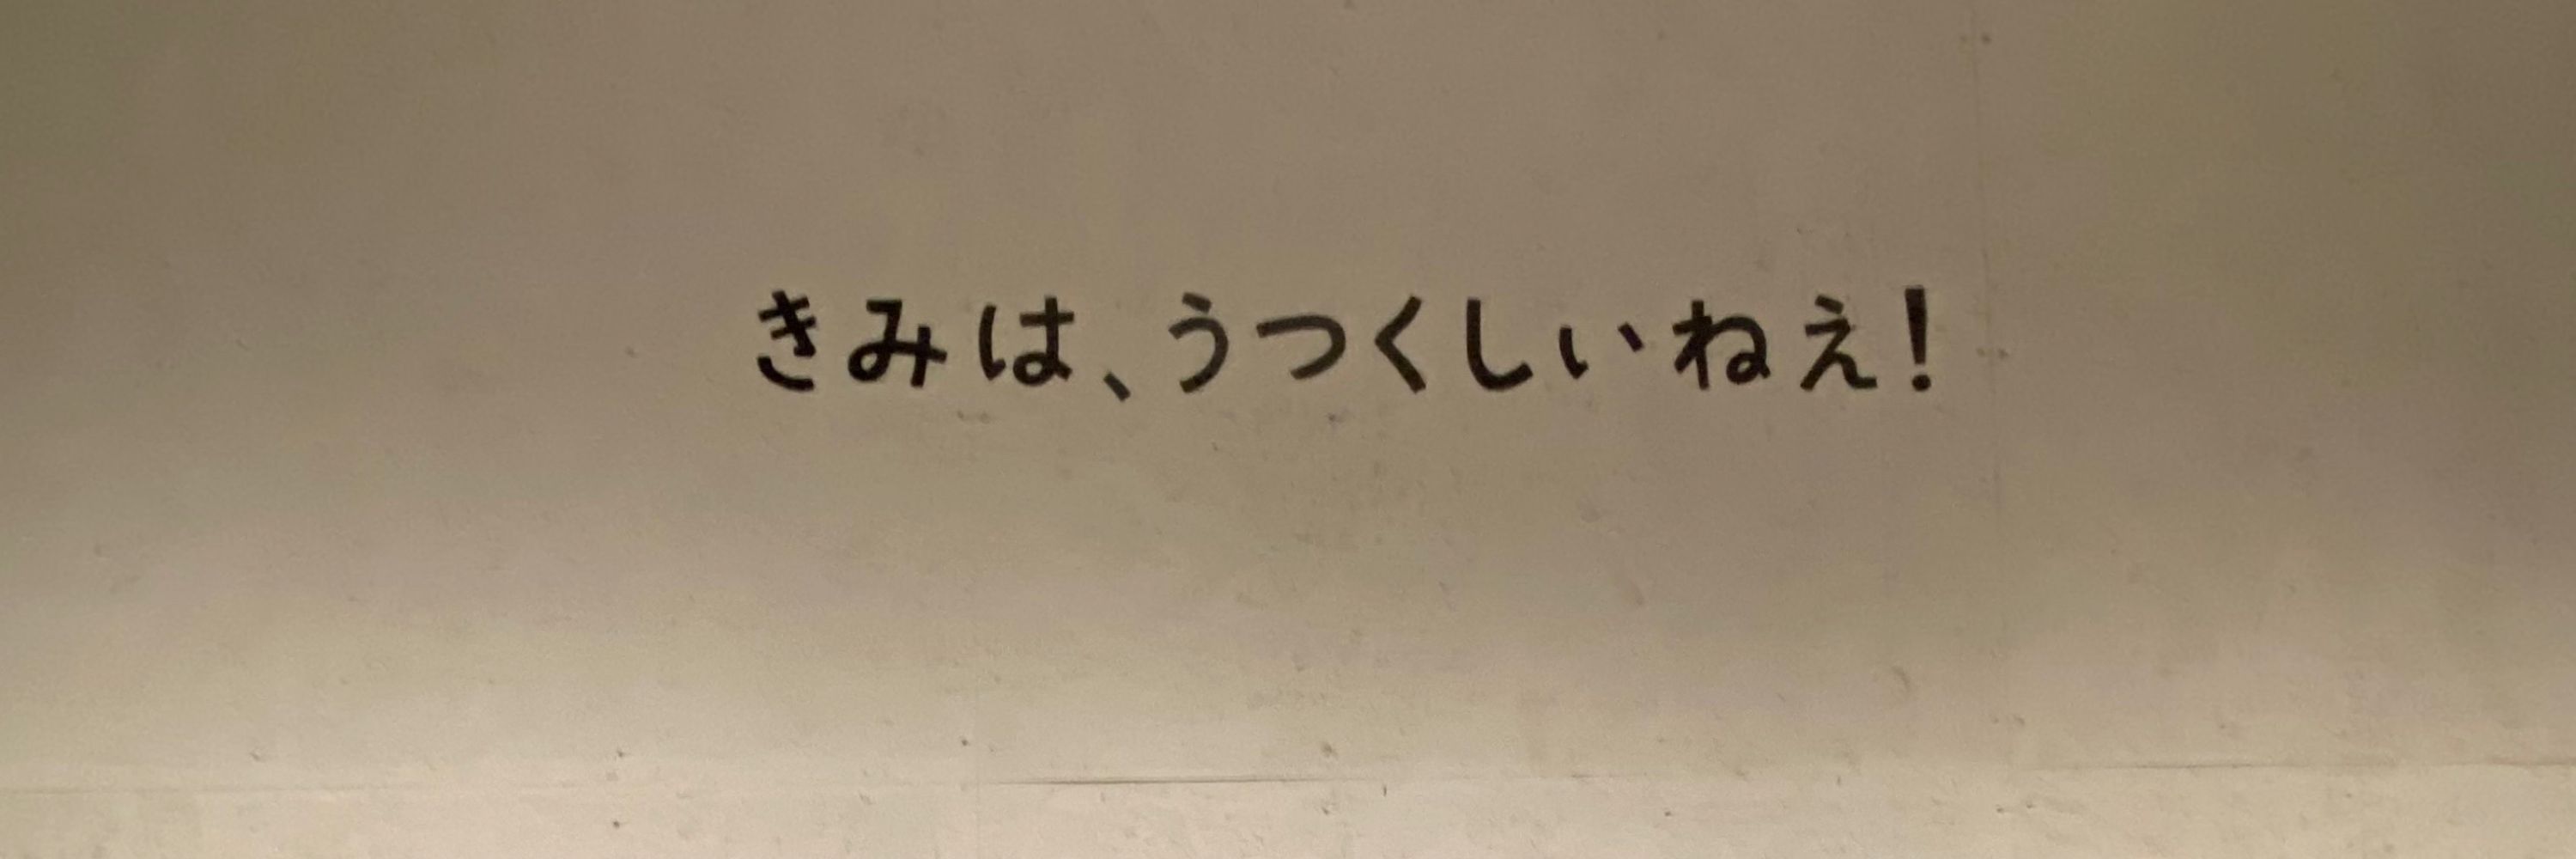 きみは、うつくしいねえ!